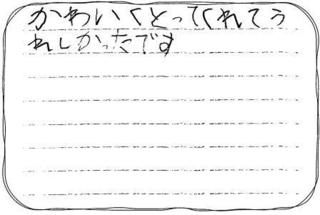 かわいくとってくれてう
れしかったです